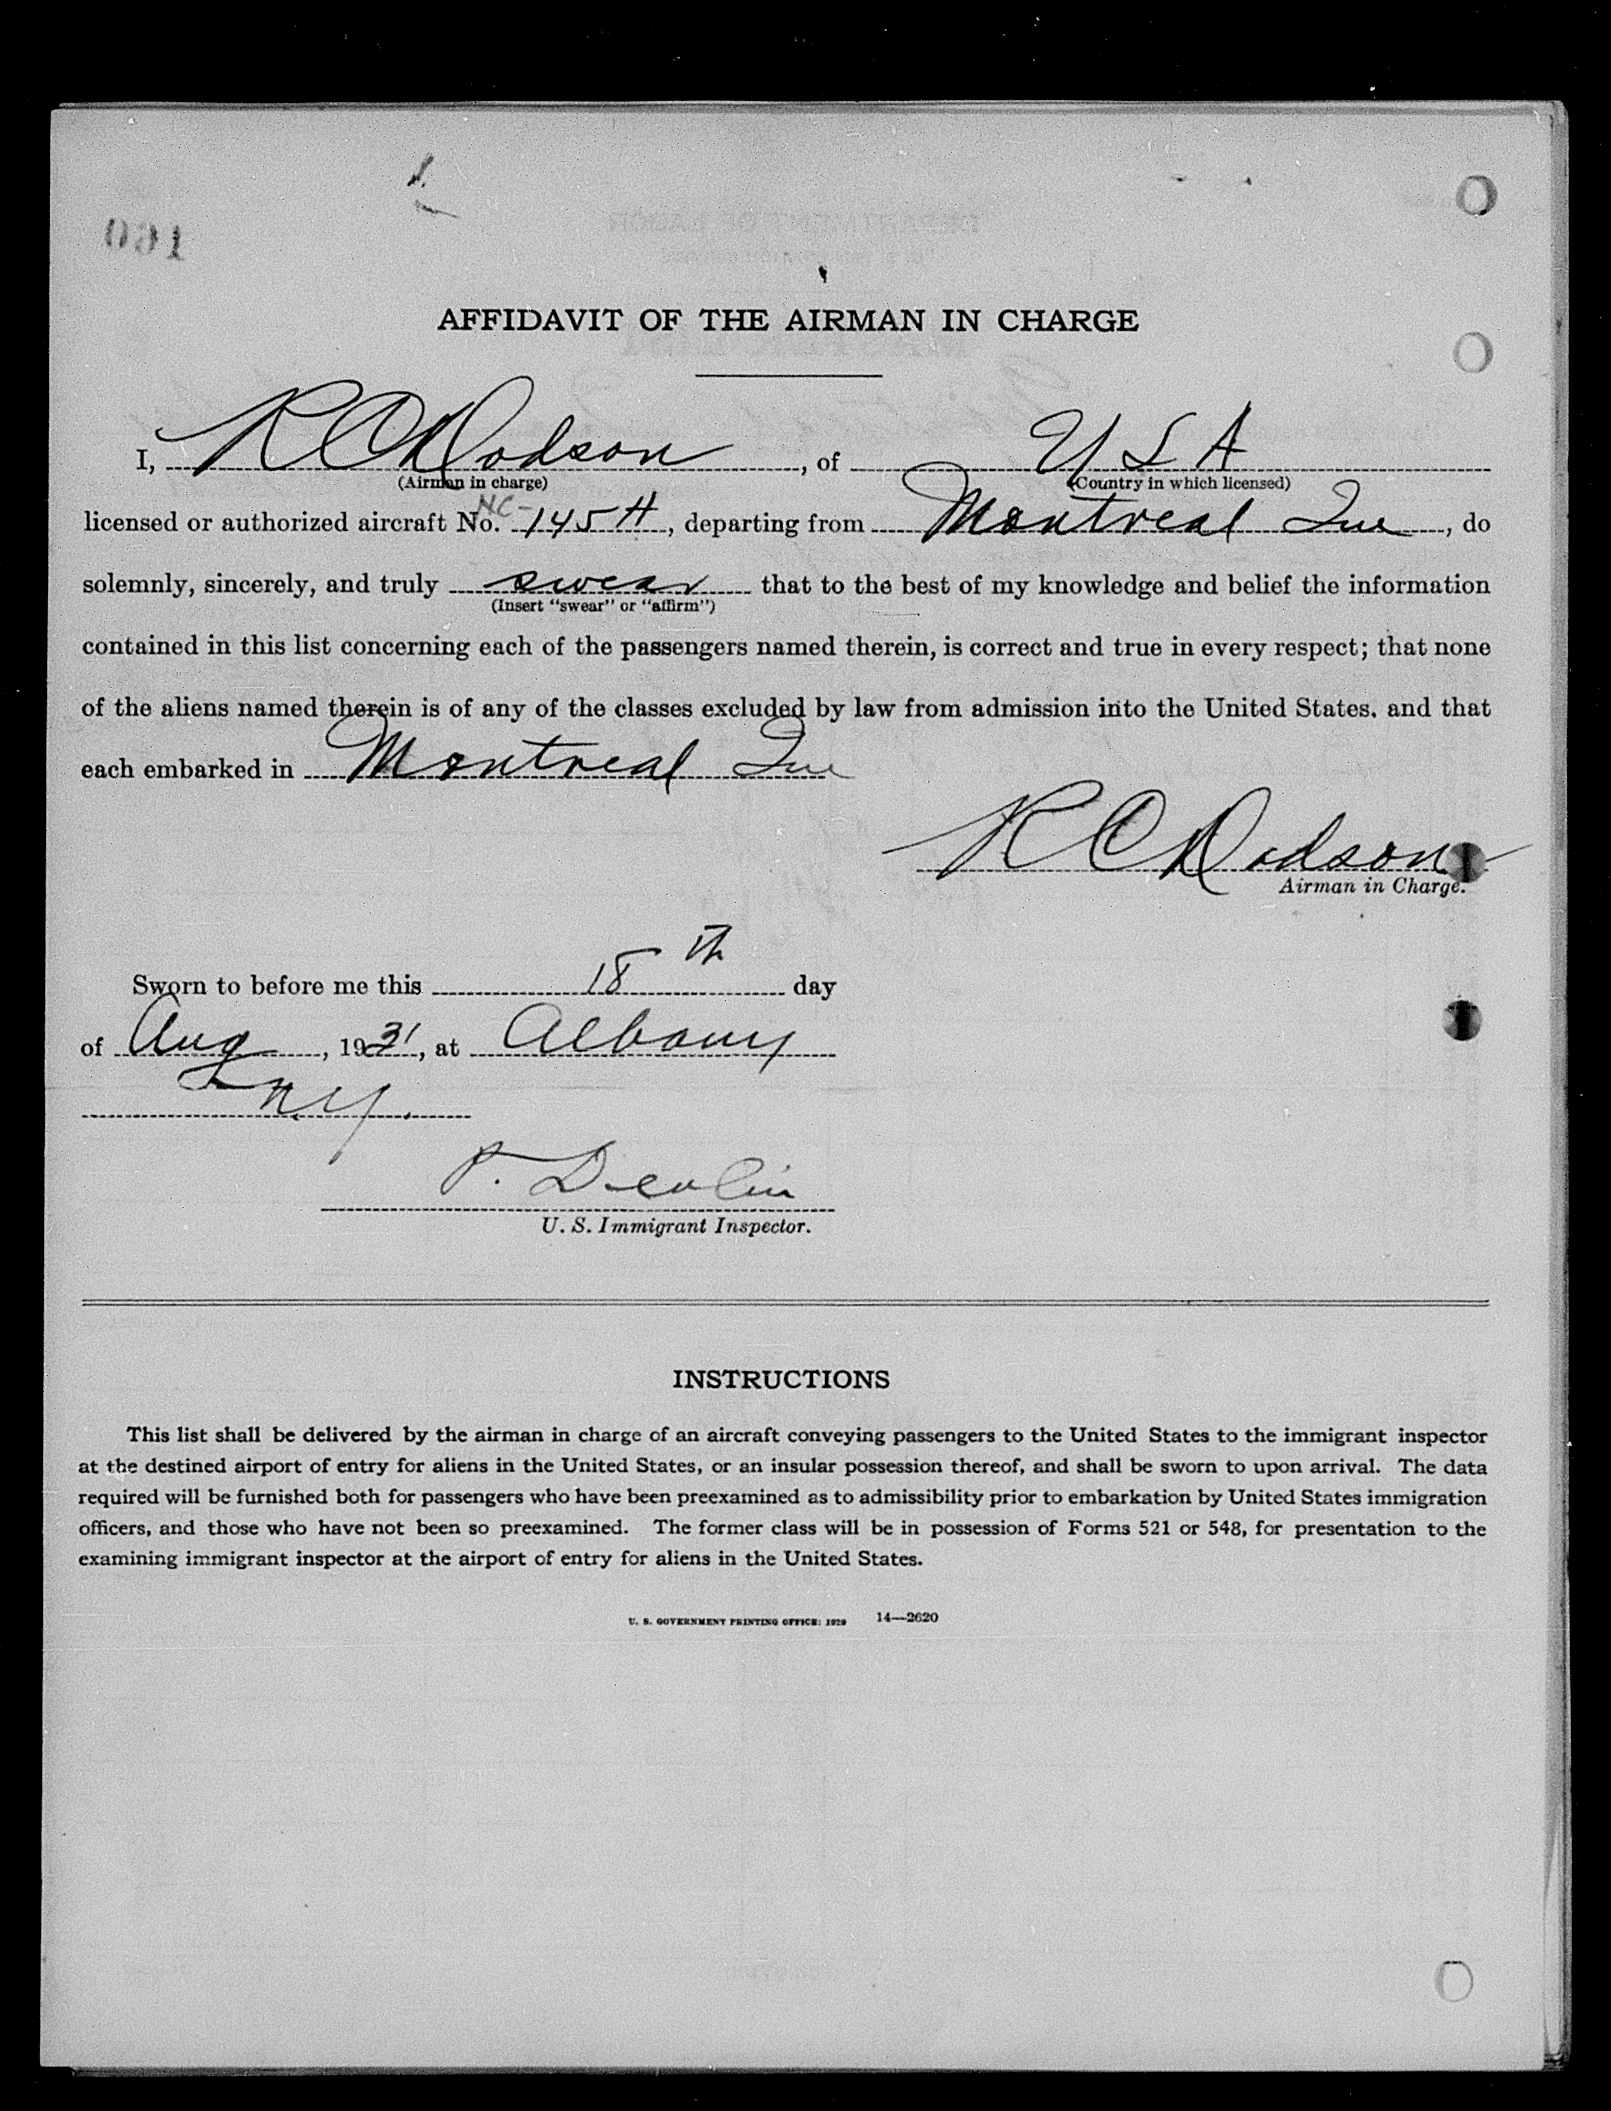 AFFIDAVIT OF THE AIRMAN IN CHARGE
I, R C Dodson, of U S A
(Airman in charge) (Country in which licensed)
licensed or authorized aircraft No. NC-145H, departing from Montreal Que, do
solemnly, sincerely, and truly swear that to the best of my knowledge and belief the information
(Insert "swear" or "affirm")
contained in this list concerning each of the passengers named therein, is correct and true in every respect; that none
of the aliens named therein is of any of the classes excluded by law from admission into the United States, and that
each embarked in Montreal Que
R C Dodson
Airman in Charge.
Sworn to before me this 18th day
of Aug, 1931, at Albany
N.Y.
P. Devlin
U. S. Immigrant Inspector.
INSTRUCTIONS
This list shall be delivered by the airman in charge of an aircraft conveying passengers to the United States to the immigrant inspector
at the destined airport of entry for aliens in the United States, or an insular possession thereof, and shall be sworn to upon arrival. The data
required will be furnished both for passengers who have been preexamined as to admissibility prior to embarkation by United States immigration
officers, and those who have not been so preexamined. The former class will be in possession of Forms 521 or 548, for presentation to the
examining immigrant inspector at the airport of entry for aliens in the United States.
U. S. GOVERNMENT PRINTING OFFICE: 1929 14—2620